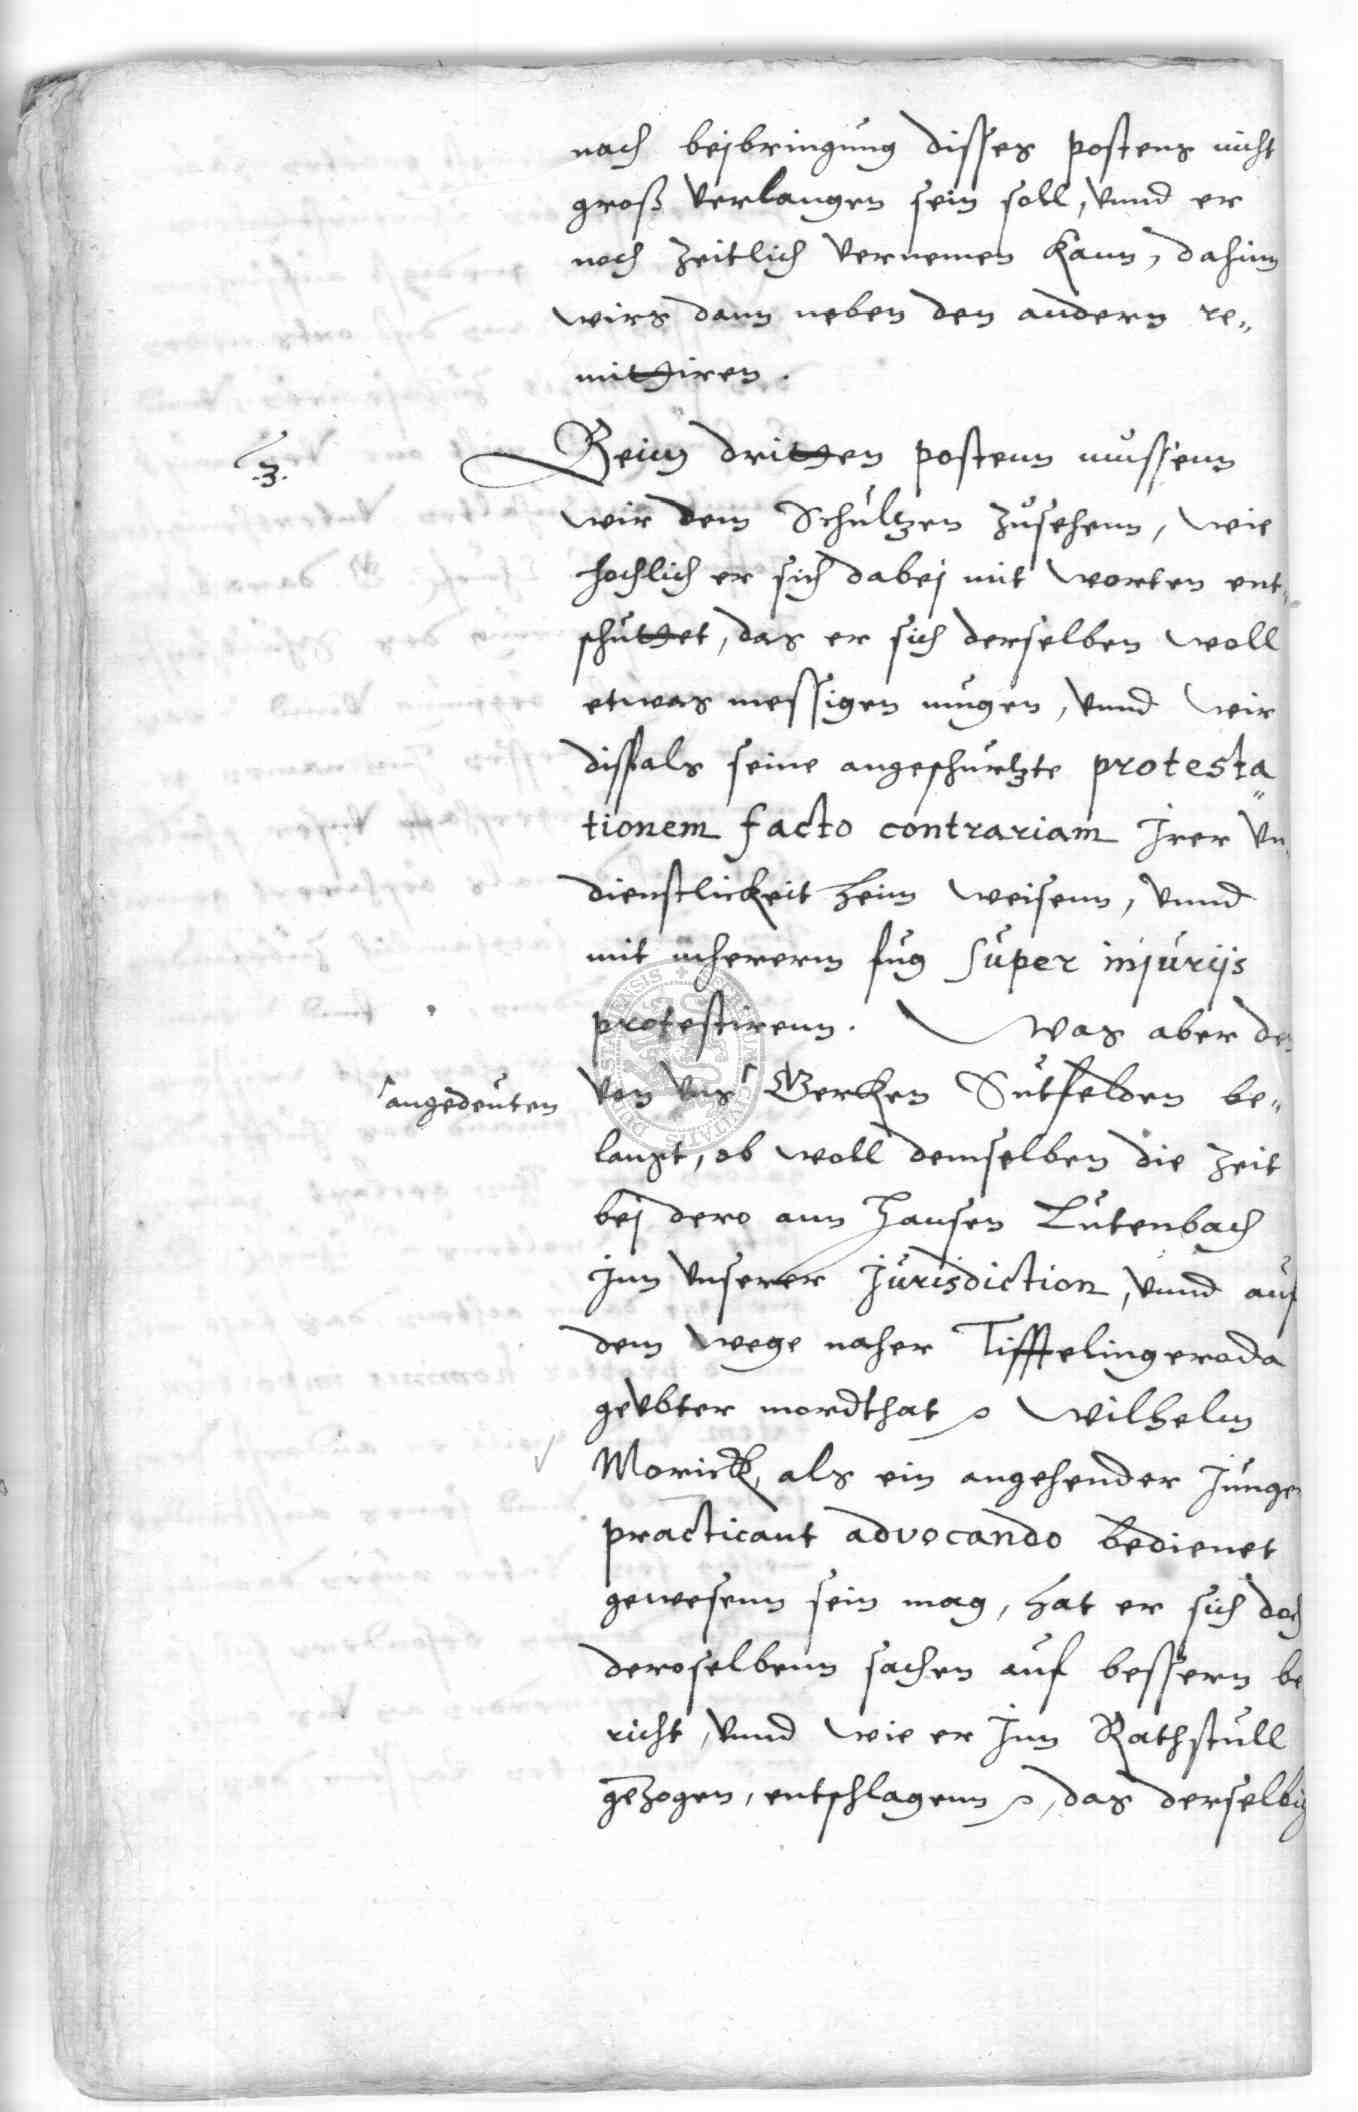 nach beibringung disses postens nicht
groß verlangen sein soll, vnnd er
noch zeitlich vernemen kann, dahinn
wirs dann neben den andern re„
mittiren.
3.
Beim dritten postenn mussenn
wir dem Schultzen zusehenn, wie
hochlich er sich dabej mit worten ent„
schuttet, das er sich derselben woll
etwas messigen mugen, vnnd wir
disfals seine angeschurtzte protesta„
tionem facto contrariam Jrer vn„
dienstlickeit heim weisenn, vnnd
mit mhererm fug super injurijs
protestirenn. Was aber den
von vns Gercken Sutfelden be„
angedeuten
langt, ob woll demselben die zeit
bej dero ann Hansen Lutenbach
Jnn vnserer Jurisdiction, vnnd auf
dem wege naher Tifftelingeroda
geubter mordthat Wilhelm
Morick, als ein angehender Junger
practicant advocando bedienet
gewesenn sein mag, hat er sich doch
deroselbenn sachen auf bessern be
richt, vnnd wie er Jnn Rathstull
gezogen, entschlagenn, das derselbig